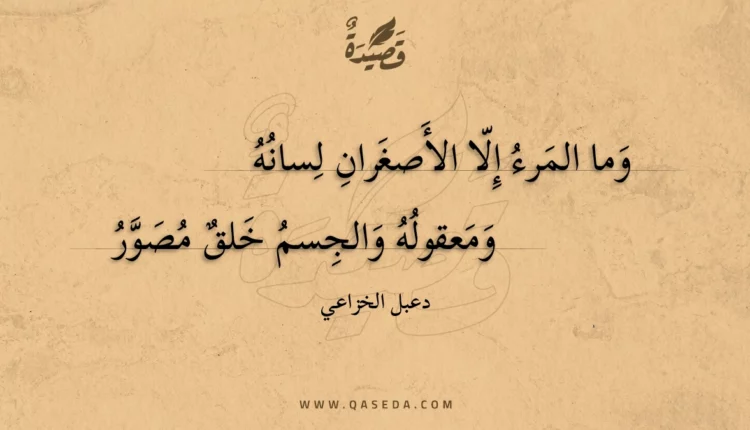 قَصِيْدَةٌ
وَما المَرءُ إِلّا الأَصغَرانِ لِسانُهُ
وَمَعقولُهُ وَالجِسمُ خَلقٌ مُصَوَّرُ
دعبل الخزاعي
WWW.QASEDA.COM